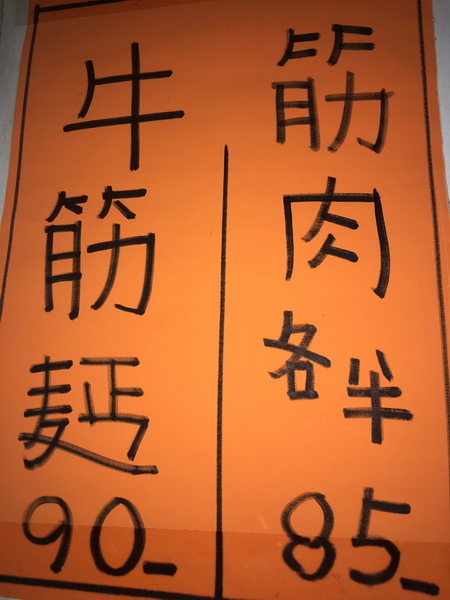 筋肉各半
85-
牛筋麪
90-